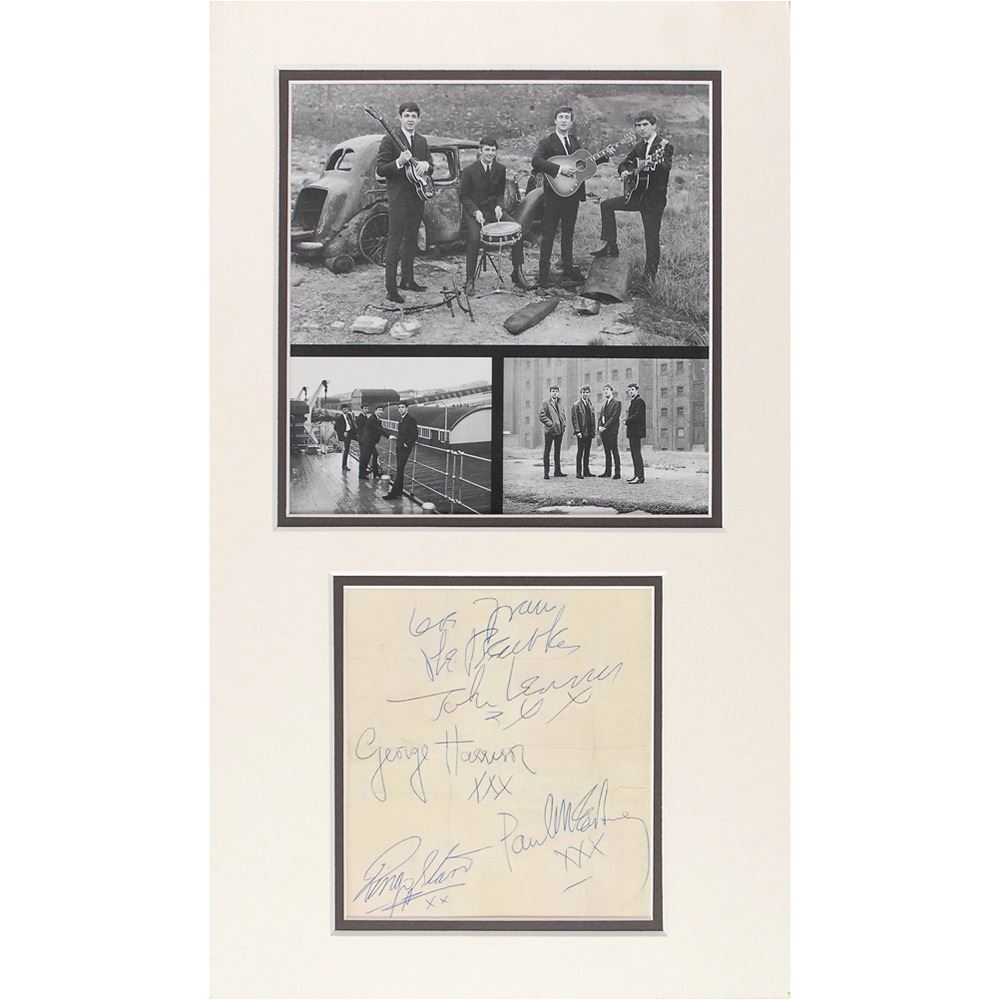 love from
The Beatles
John Lennon
xxx
George Harrison
xxx
Paul McCartney
xxx
Ringo Starr
xx